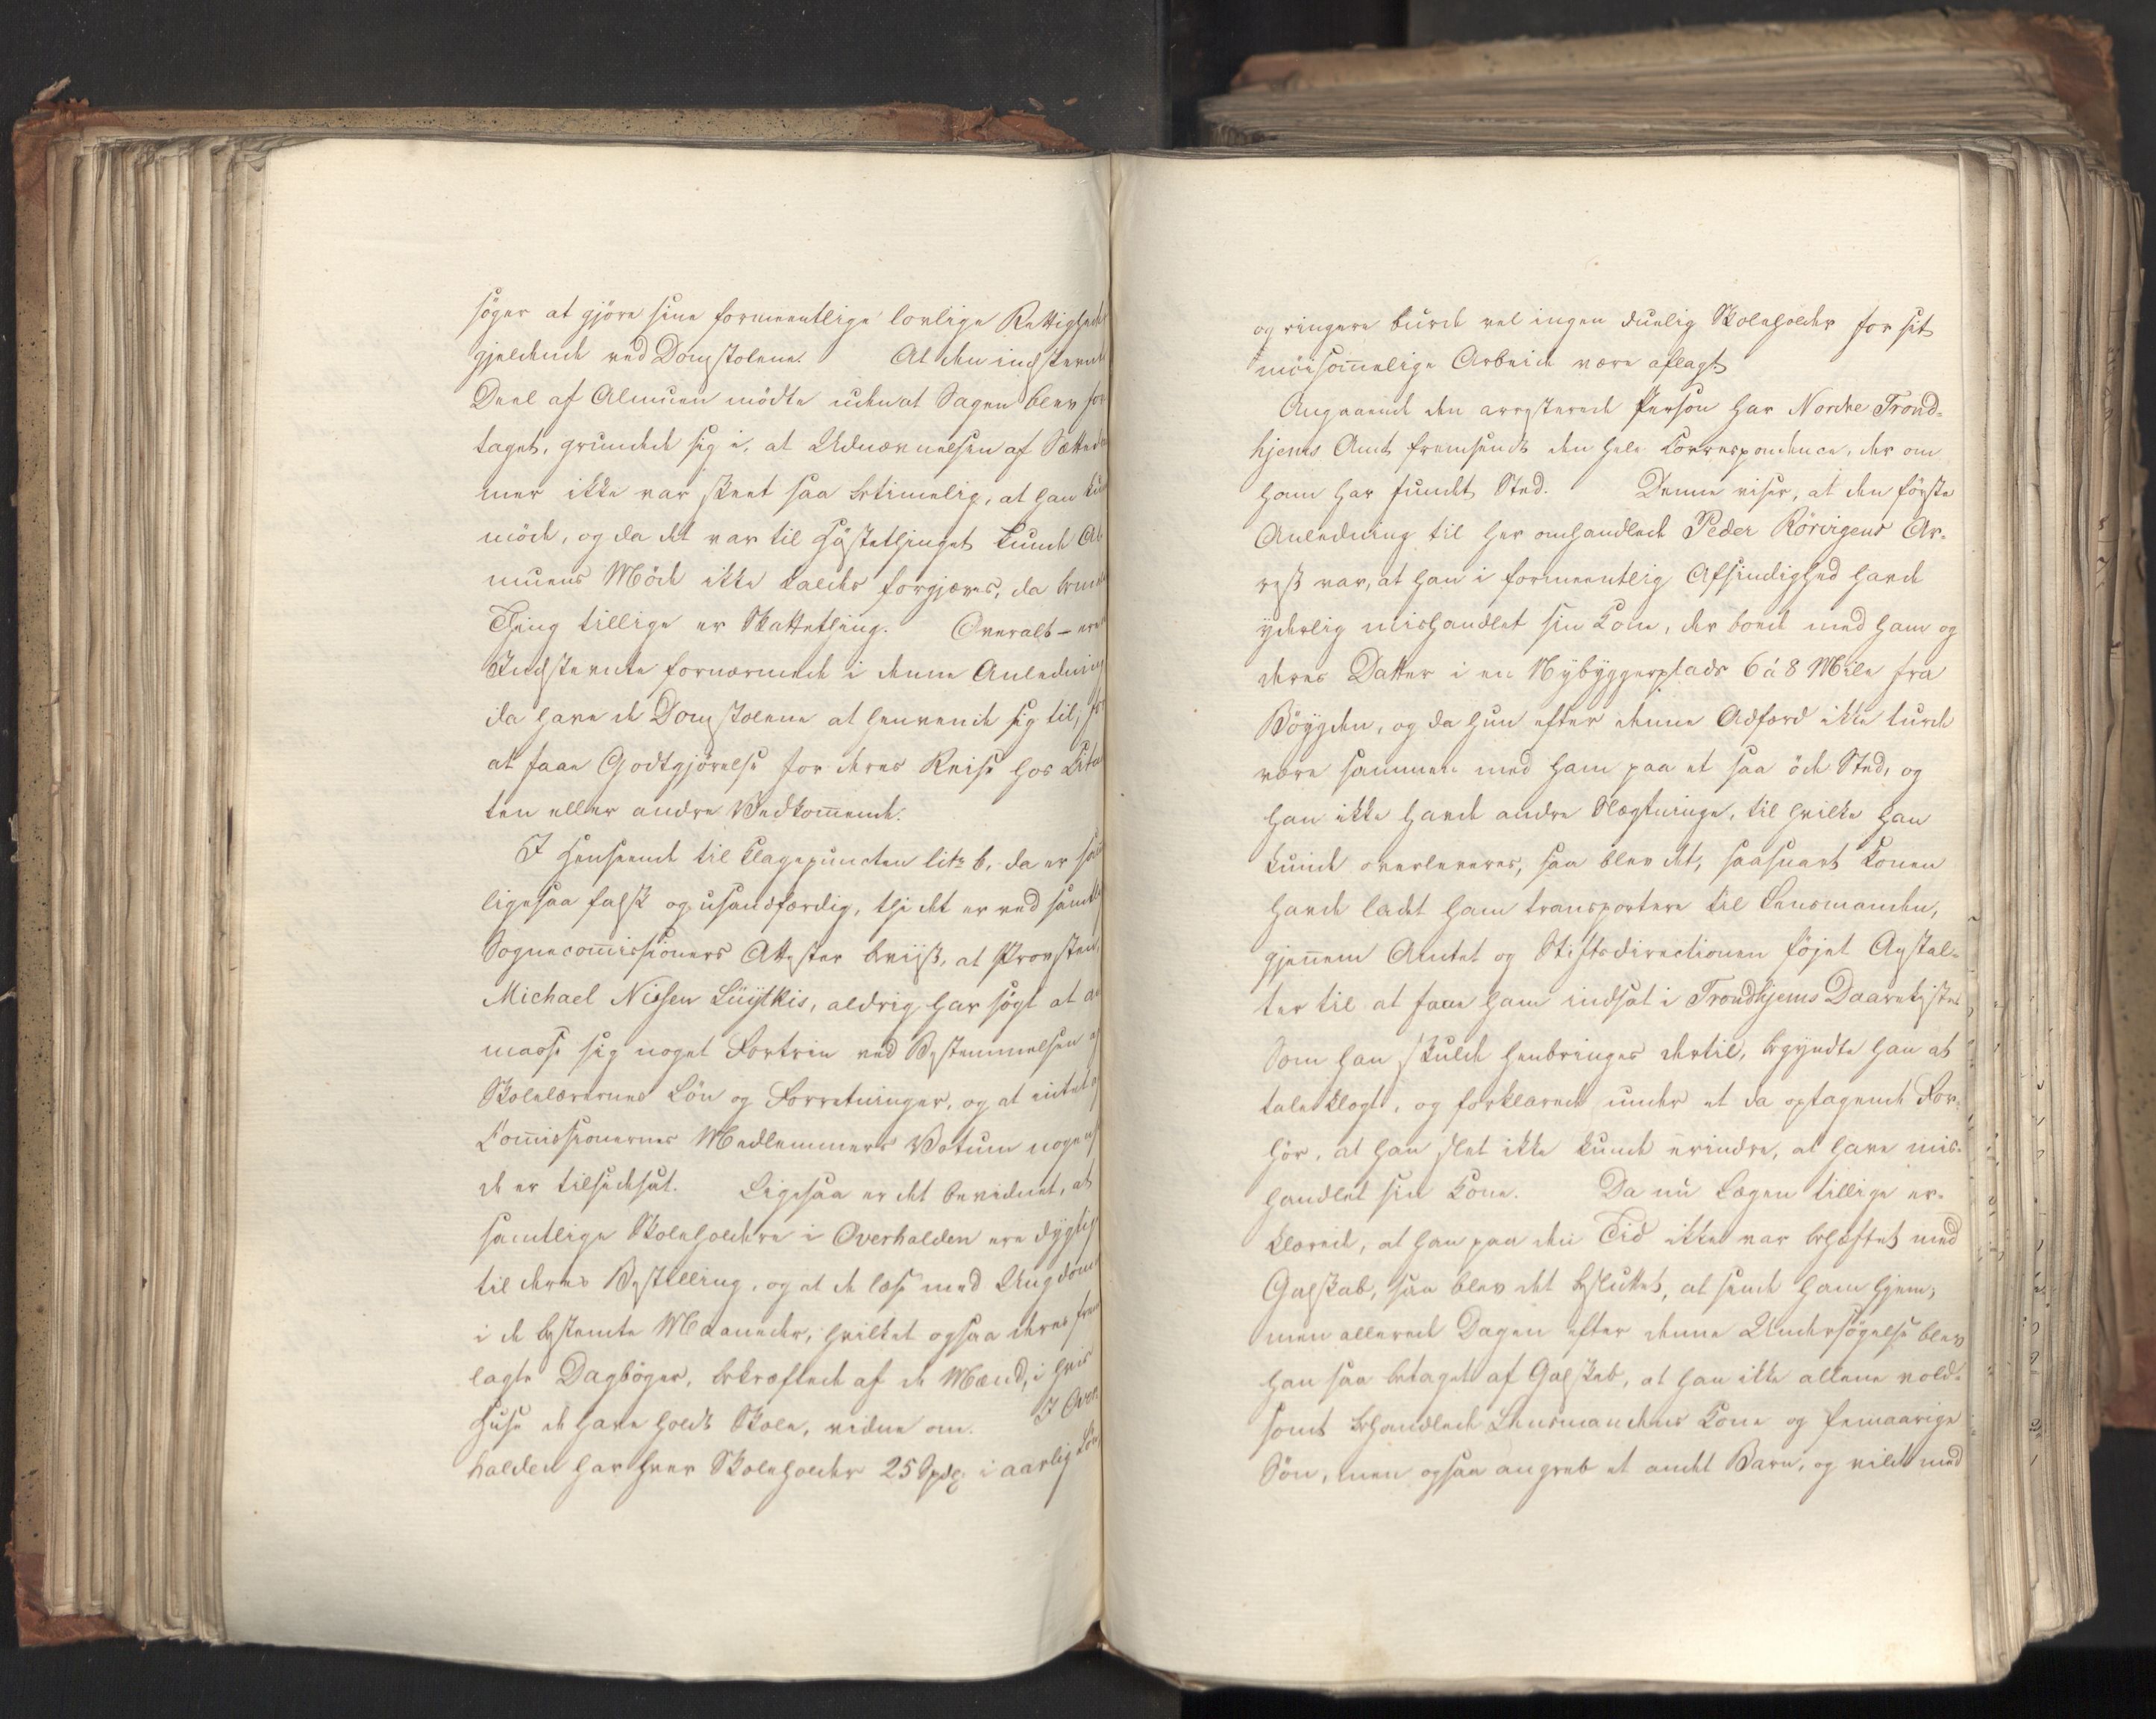 söger at gjöre sine formeentlige lovlige Rettigheder
gjeldende ved Domstolene. At den indstevnte
Deel af Almuen mödte uden at Sagen blev fore
taget, grundede sig i, at Udnævnelsen af Sætte
mer ikke var skeet saa betimelig, at han kun
möde, og da det var til Höstethinget kunde Al
muens Möde ikke kaldes forgjæves, da bem
Thing tillige er Skattething. Overalt – ere
Indstevnte fornærmede i denne Anledning
da have de Domstolene at henvende sig til, for
at faae Godtgjörelse for deres Reise hos Citan
ten eller andre Vedkom̅ende.
I Henseende til Klagepuncten litr b, da er
ligesaa falsk og usandfærdig, thi det er ved samtl
Sognecom̅issioners Attester beviist, at Provsten,
Michael Nissen Lüytkis, aldrig har sögt at an
masse sig noget Fortrin ved Bestemmelsen af
Skolelærernes Lön og Forretninger, og at intet af
Com̅issionernes Medlemmers Votum nogen
de er tilsidesat. Ligesaa er det bevidnet, at
samtlige Skoleholdere i Overhalden ere dygtige
til deres Bestilling, og at de læse med Ungdom
i de bestemte Maaneder, hvilket ogsaa deres frem
lagte Dagböger, bekræftede af de Mænd, i hvis
Huse de have holdt Skole, vidne om. I Over
halden har hver Skoleholder 25 Spd. i aarlig Lön,
og ringere burde vel ingen duelig Skoleholder for sit
möisom̅elige Arbeide være aflagt.
Angaaende den arresterede Person har Nordre Trond-
hjems Amt fremsendt den hele Correspondence, der om
ham har fundet Sted. Denne viser, at den förste
Anledning til her omhandlede Peder Rörvigens Ar-
rest var, at han i formeentlig Afsindighed havde
yderlig mishandlet sin Kone, der boede med ham og
deres Datter i en Nybyggerplads 6 á 8 Mile fra
Böygden, og da hun efter denne Adfærd ikke turde
være sammen med ham paa et saa öde Sted, og
han ikke havde andre Slægtninge, til hvilke han
kunde overleveres, saa blev det, saasnart Konen
havde ladet ham transportere til Lensmanden,
gjen̅em Amtet og Stiftsdirectionen föjet Anstal-
ter til at faae ham indsat i Trondhjems Daarekiste.
Som han skulde henbringes dertil, begyndte han at
tale klogt, og forklarede under et da optagende For-
hör, at han slet ikke kunde erindre, at have mis-
handlet sin Kone. Da nu Lægen tillige er-
klærede, at han paa den Tid ikke var behæftet med
Galskab, saa blev det besluttet, at sende ham hjem,
men allerede Dagen efter denne Undersögelse blev
han saa betaget af Galskab, at han ikke allene vold-
somt behandlede Lensmandens Kone og femaarige
Sön, men ogsaa angreb et andet Barn, og vilde med